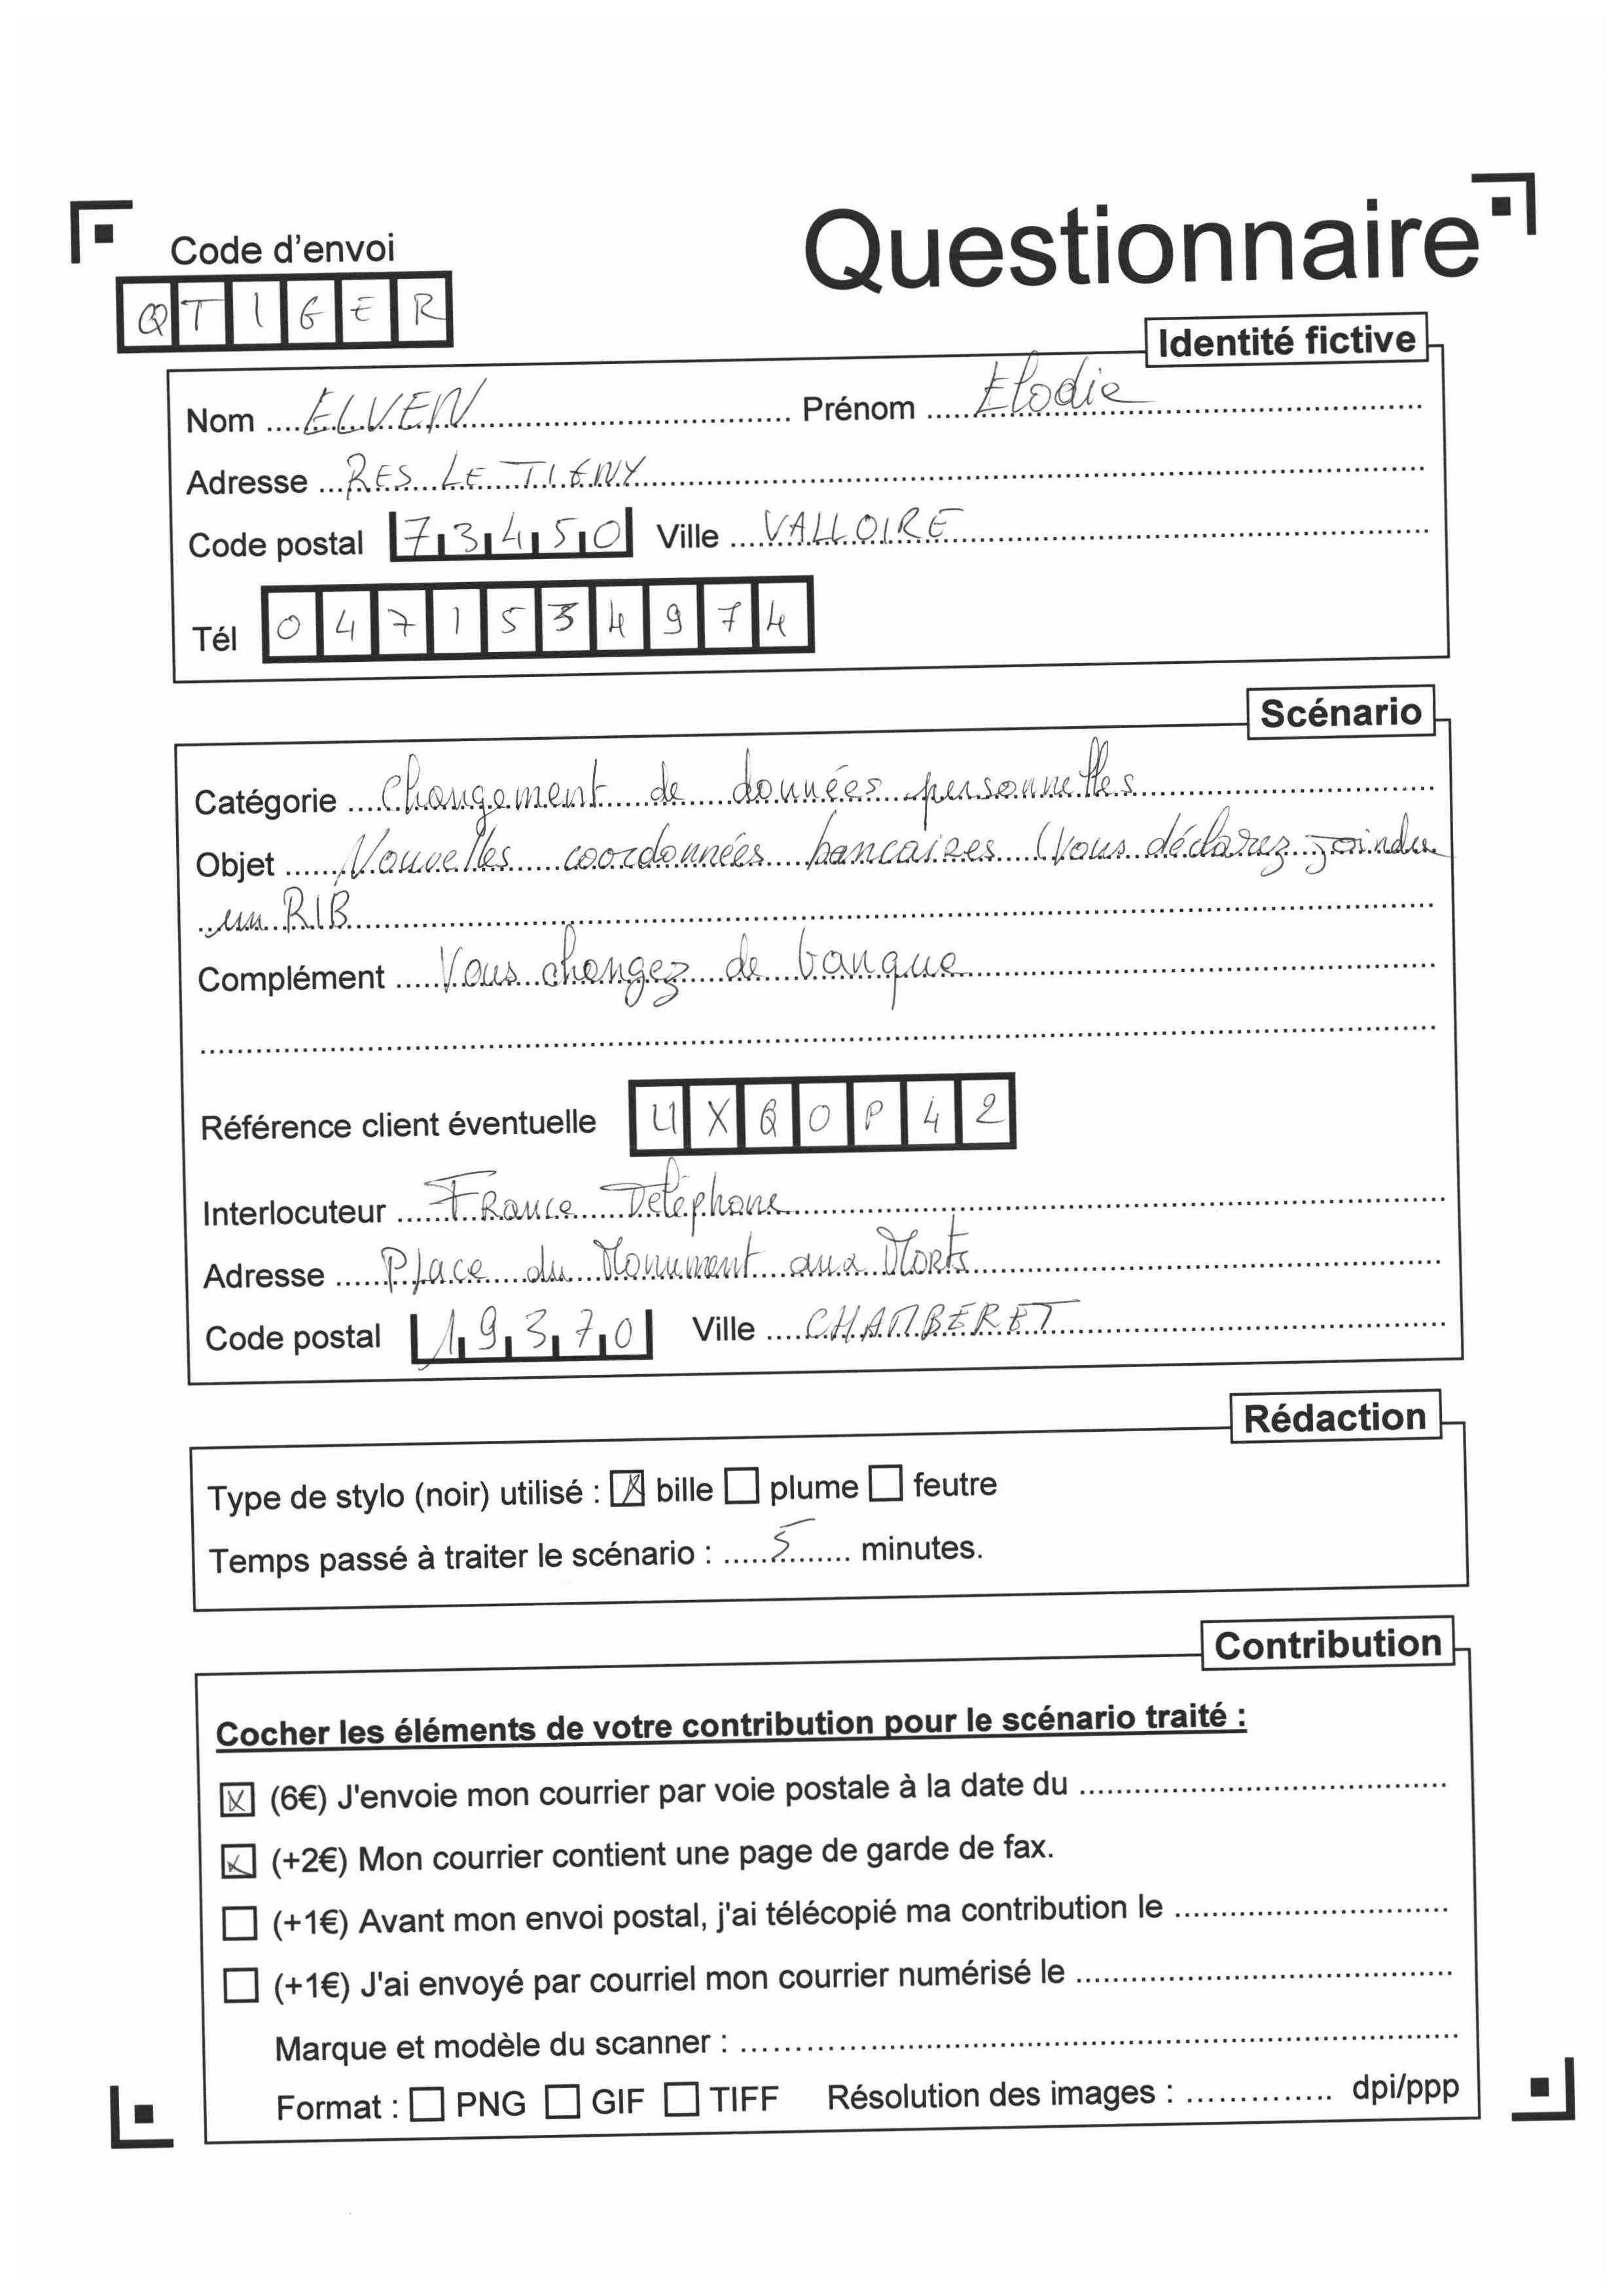 Code d'envoi
Questionnaire
QTIGER
Identité fictive
Nom ELVEN Prénom Elodie
Adresse RES LE TIGNY
Code postal 73450 Ville VALLOIRE
Tél 0471534974
Scénario
Catégorie Changement de données personnelles
Objet Nouvelles coordonnées bancaires (Vous déclarez joindre
un RIB
Complément Vous changez de banque
Référence client éventuelle UXQOP42
Interlocuteur France Téléphone
Adresse Place du Monument aux Morts
Code postal 19370 Ville CHAMBERET
Rédaction
Type de stylo (noir) utilisé : X bille plume feutre
Temps passé à traiter le scénario : 5 minutes.
Contribution
Cocher les éléments de votre contribution pour le scénario traité :
X (6€) J'envoie mon courrier par voie postale à la date du
X (+2€) Mon courrier contient une page de garde de fax.
(+1€) Avant mon envoi postal, j'ai télécopié ma contribution le
(+1€) J'ai envoyé par courriel mon courrier numérisé le
Marque et modèle du scanner :
Format : PNG GIF TIFF Résolution des images : dpi/ppp